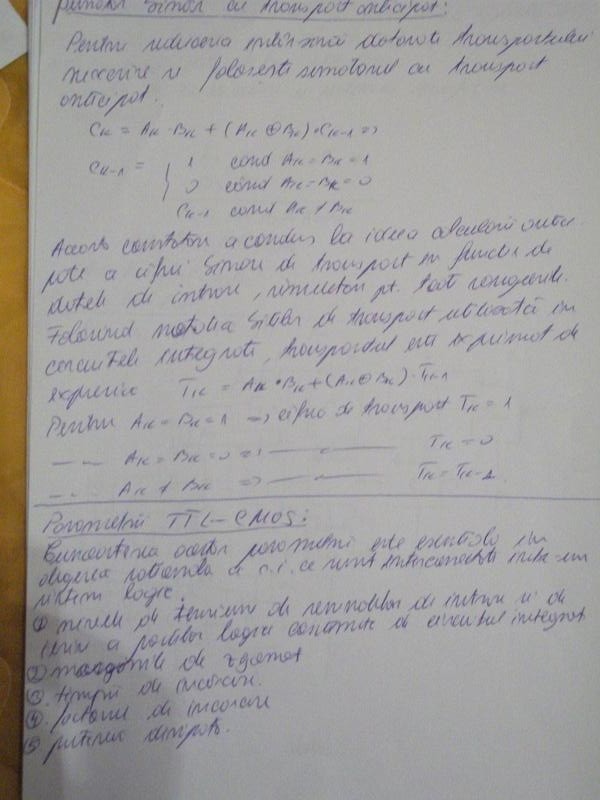 sumator cu transport anticipat:
Pentru reducerea întârzierii datorate transportului
succesiv se folosește sumatorul cu transport
anticipat.
CK = AK · BK + (AK ⊕ BK) · CK-1 =>
CK-1 = 1 când AK = BK = 1
0 când AK = BK = 0
CK-1 când AK ≠ BK
Această constatare a condus la ideea calculării antici
pate a cifrei de transport în funcție de
datele de intrare, simultan pt. toate rangurile.
Folosind notația de transport utilizată în
circuitele integrate, transportul este exprimat de
expresia TK = AK · BK + (AK ⊕ BK) · TK-1
Pentru AK = BK = 1 => cifra de transport TK = 1
— — AK = BK = 0 => — — TK = 0
— — AK ≠ BK => — TK = TK-1
Parametrii TTL – CMOS:
Cunoașterea acestor parametrii este esențială în
alegerea rațională a c.i. ce sunt interconectate într-un
sistem logic.
① nivele de tensiune de semnalelor de intrare și de
ieșire a porților logice conținute de circuitul integrat
② marginile de zgomot
③. timpii de
④. factorul de încărcare
⑤ puterea disipată.